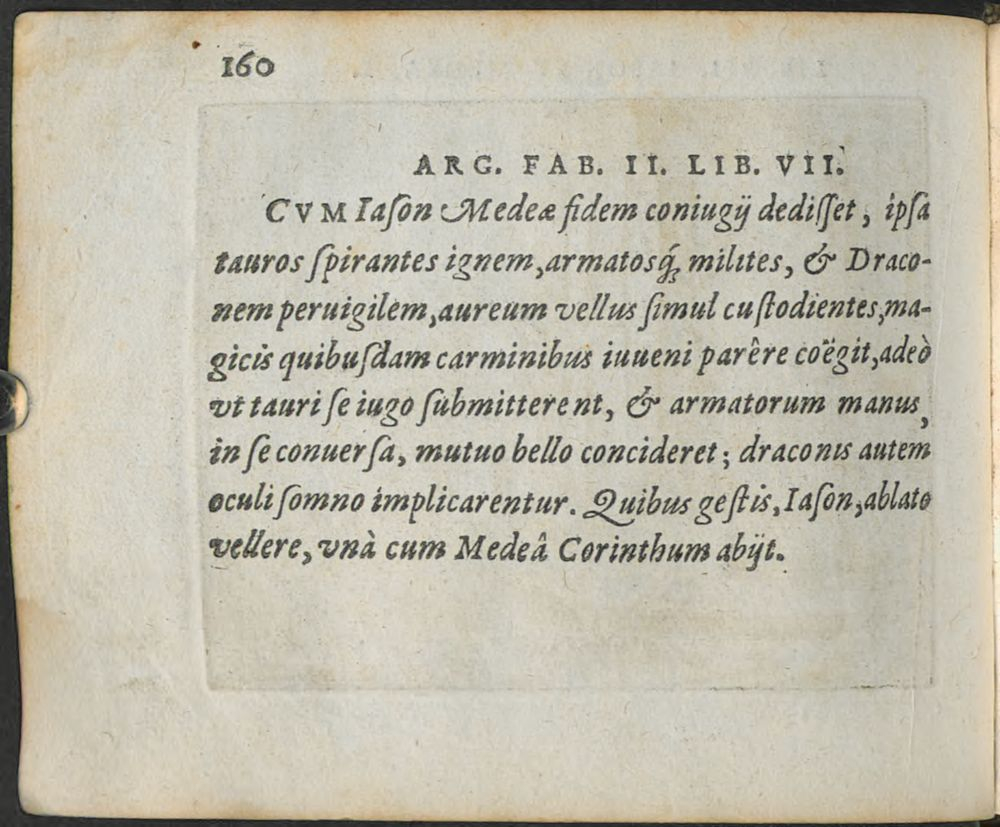 160
ARG. FAB. II. LIB. VII.
CVM Iaſon Medeæ fidem coniugij dediſſet, ipſa
tauros ſpirantes ignem, armatosq́; milites, & Draco-
nem peruigilem, aureum vellus ſimul cuſtodientes, ma-
gicis quibuſdam carminibus iuueni parêre coëgit, adeò
vt tauri ſe iugo ſubmitterent, & armatorum manus,
in ſe conuerſa, mutuo bello concideret; draconis autem
oculi ſomno implicarentur. Quibus geſtis, Iaſon, ablato
vellere, vnà cum Medeâ Corinthum abijt.